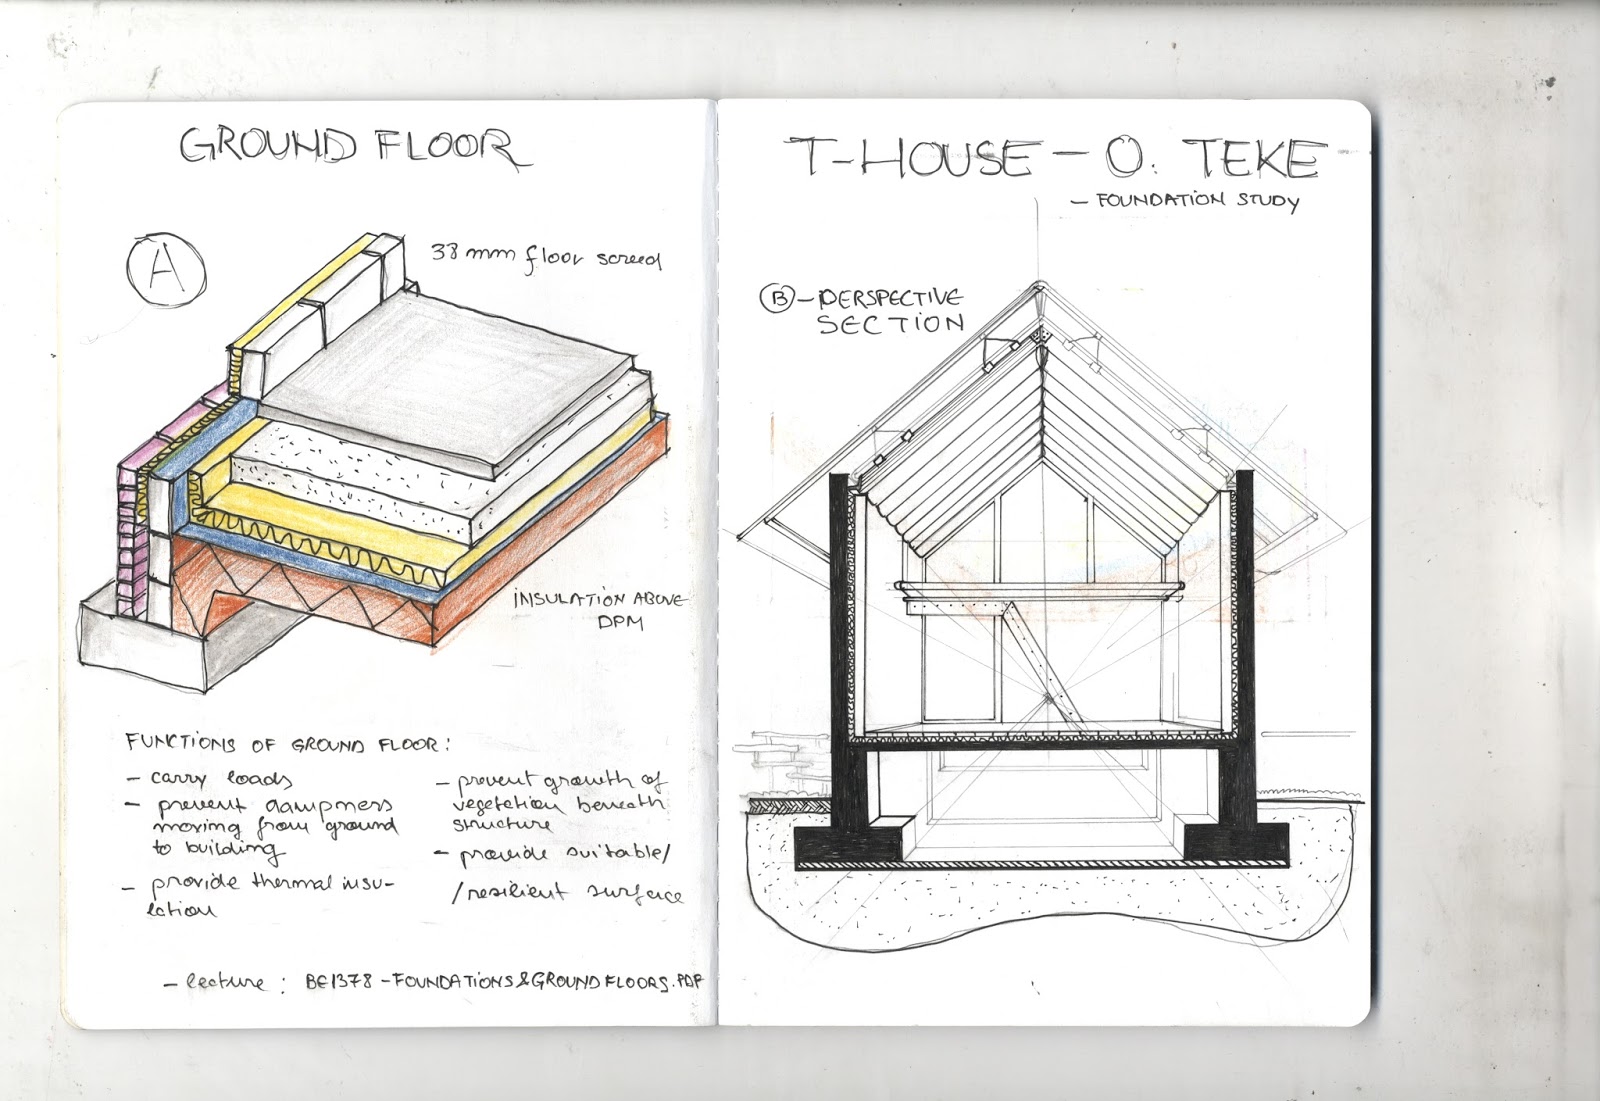 GROUND FLOOR
A
38 mm floor screed
INSULATION ABOVE
DPM
FUNCTIONS OF GROUND FLOOR:
- carry loads
- prevent dampness
moving from ground
to building
- provide thermal insu-
lation
- prevent growth of
vegetation beneath
structure
- provide suitable/
/resilient surface
- lecture: BE1378-FOUNDATIONS&GROUNDFLOORS.PDF
T-HOUSE - O. TEKE
- FOUNDATION STUDY
B - PERSPECTIVE
SECTION